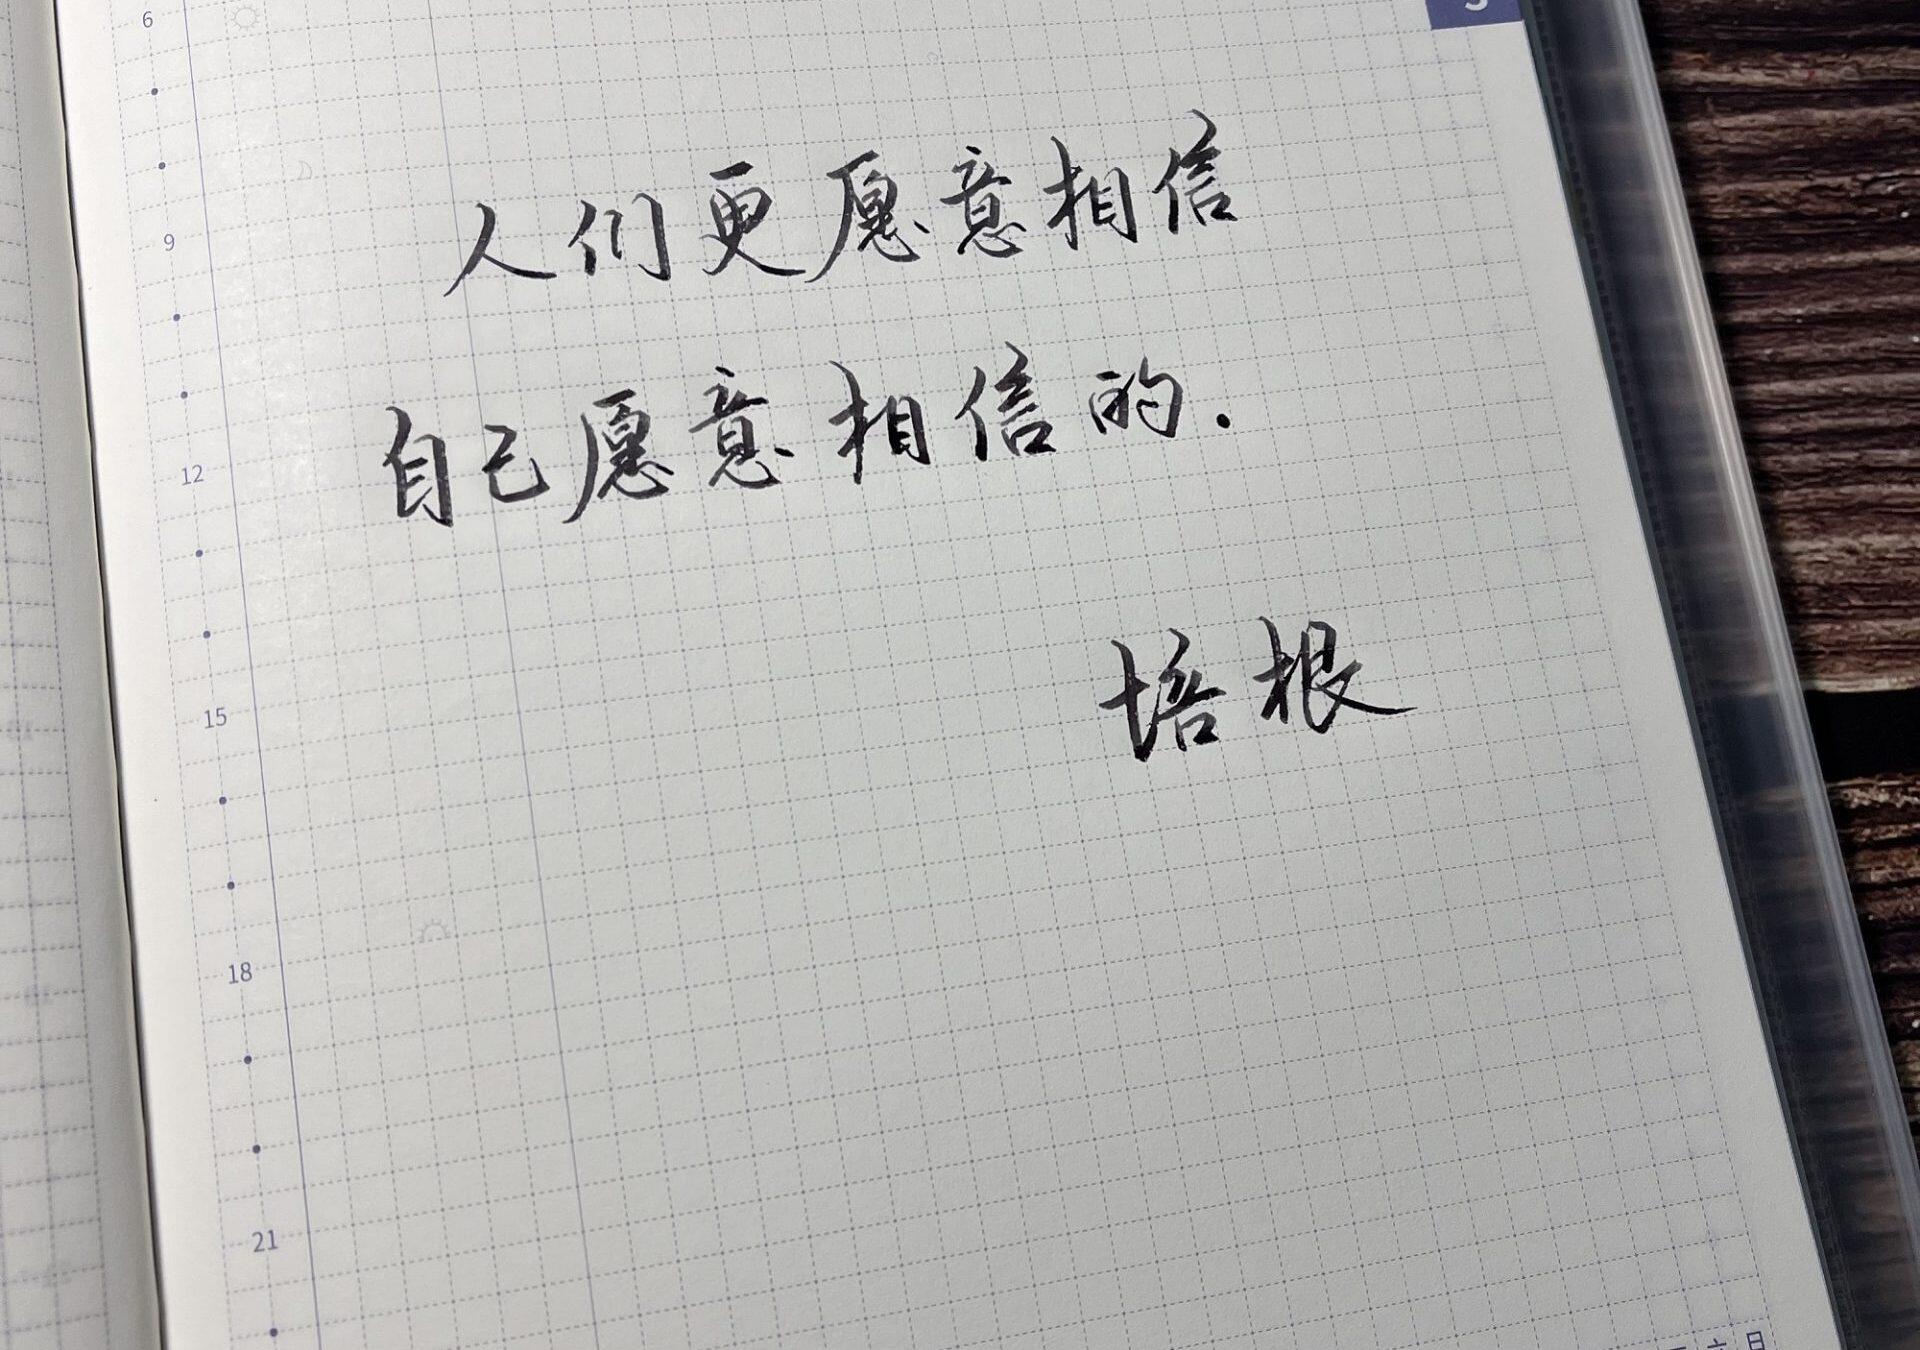 6
9
12
15
18
21
人们更愿意相信
自己愿意相信的.
培根
六日